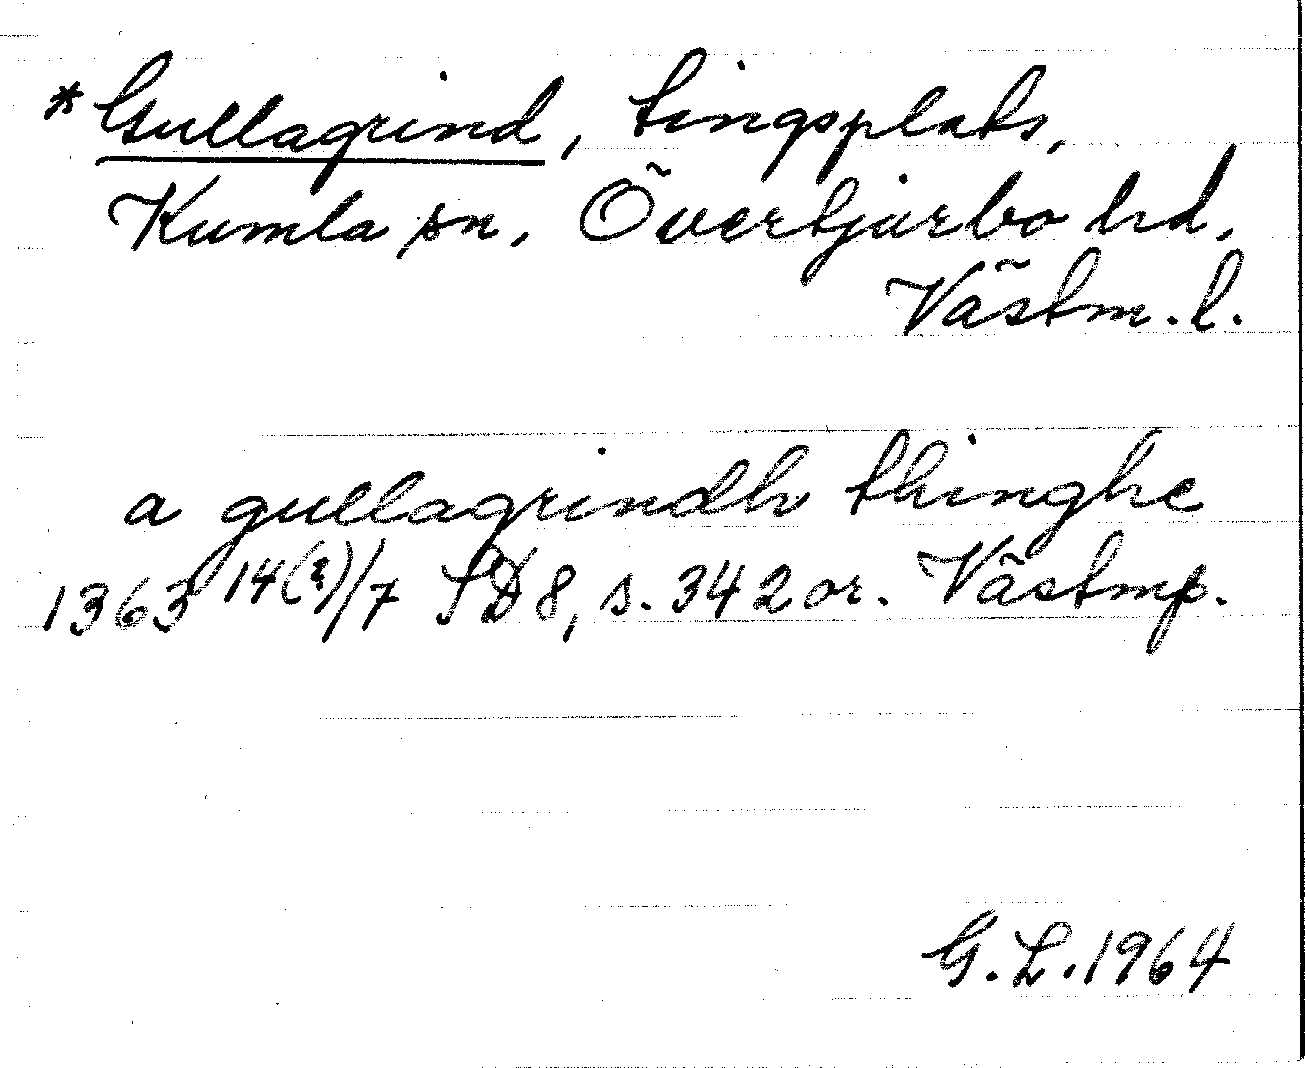 *Gullagrind, tingsplats,
Kumla sn, Övertjurbo hd,
Västm. l.
a gullagrindh thinghe
1363 14(?)/7 SD 8, s. 342 or. Västmp.
G. L. 1964